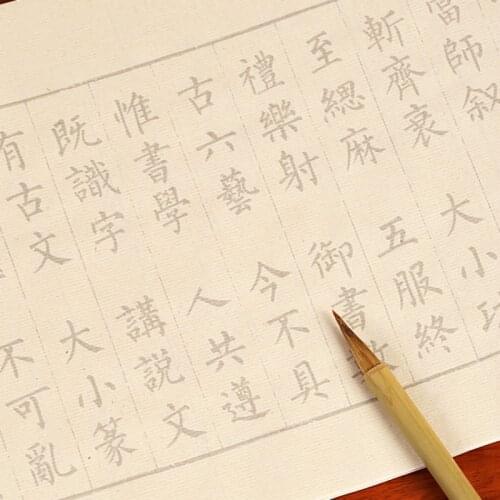 當師叙
斬齊衰大小功
至緦麻五服終
禮樂射御書數
古六藝今不具
惟書學人共遵
既識字講説文
有古文大小篆
不可亂